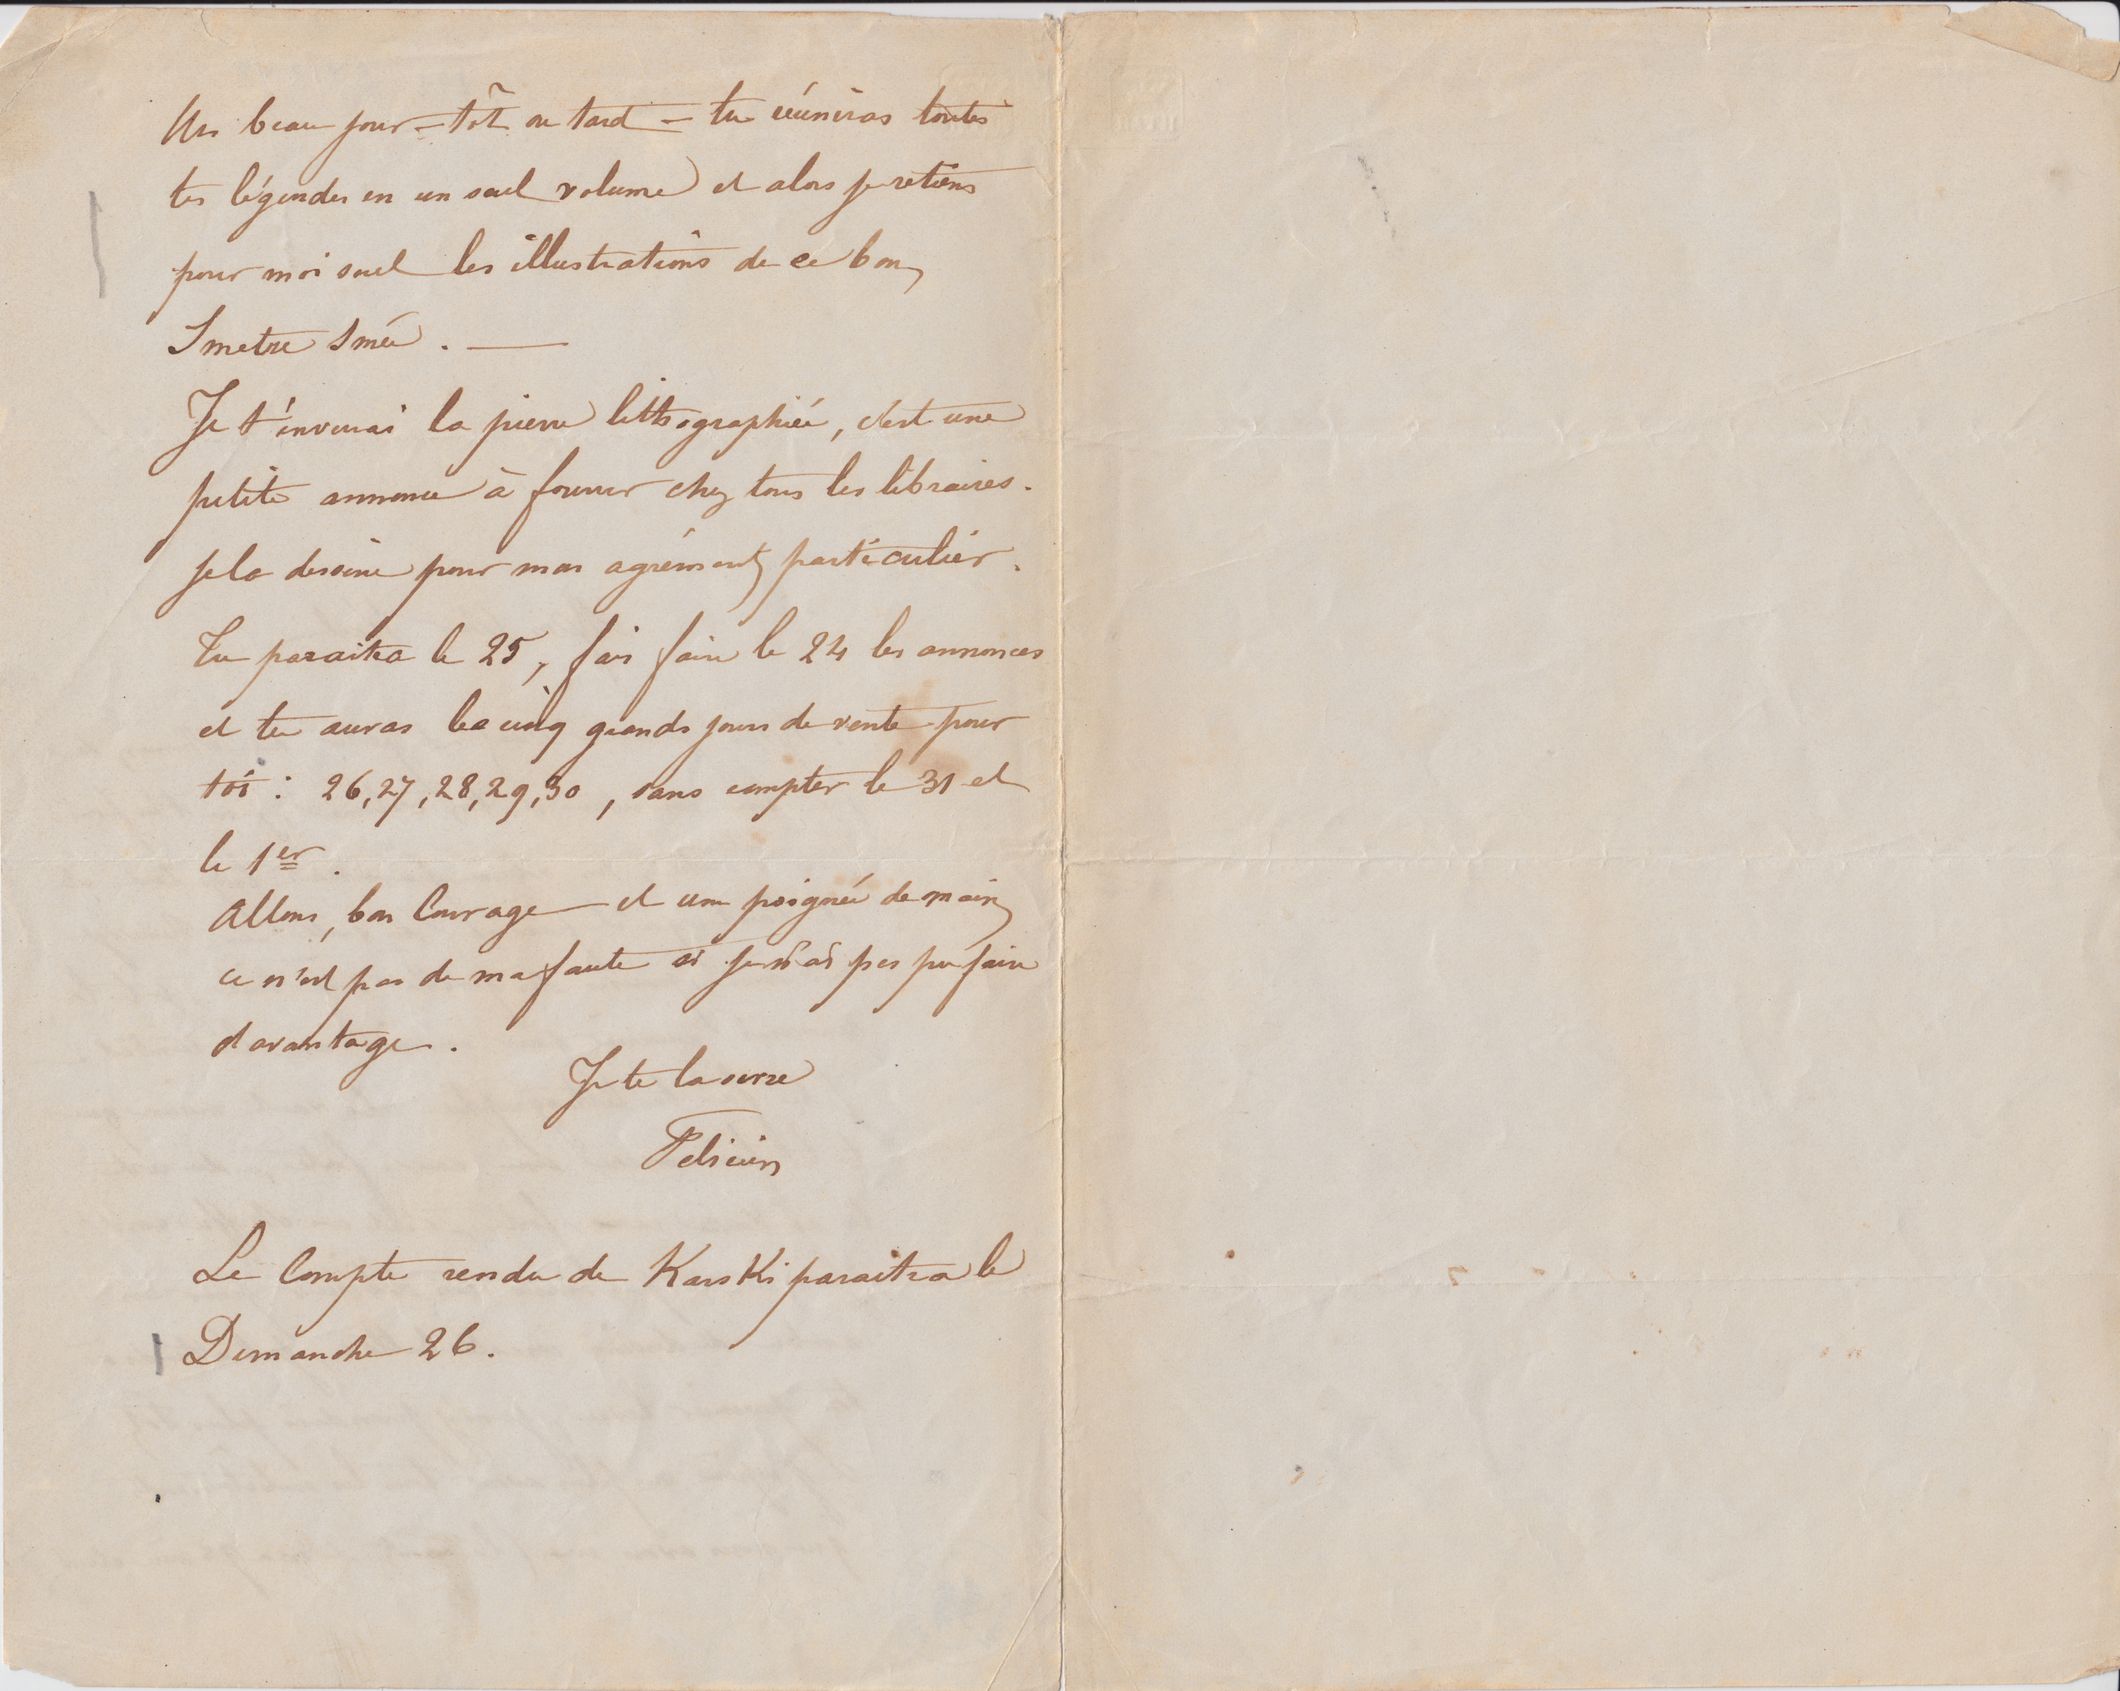 Un beau jour – tôt ou tard – tu réuniras toutes
tes légendes en un seul volume et alors je retiens
pour moi seul les illustrations de ce bon
Smetse Smée .
Je t'enverrai la pierre lithographiée, c'est une
petite annonce à fourrer chez tous les libraires.
je la dessine pour mon agrément particulier.
Tu paraitra le 25, fais faire le 24 les annonces
et tu auras les cinq grands jours de vente pour
toi : 26, 27, 28, 29, 30, sans compter le 31 et
le 1er.
Allons, bon Courage et une poignée de main
ce n'est pas de ma faute si je n'ai pas pu faire
davantage.
Je te la serre
Felicien
Le Compte rendu de Karski paraitra le
Dimanche 26.